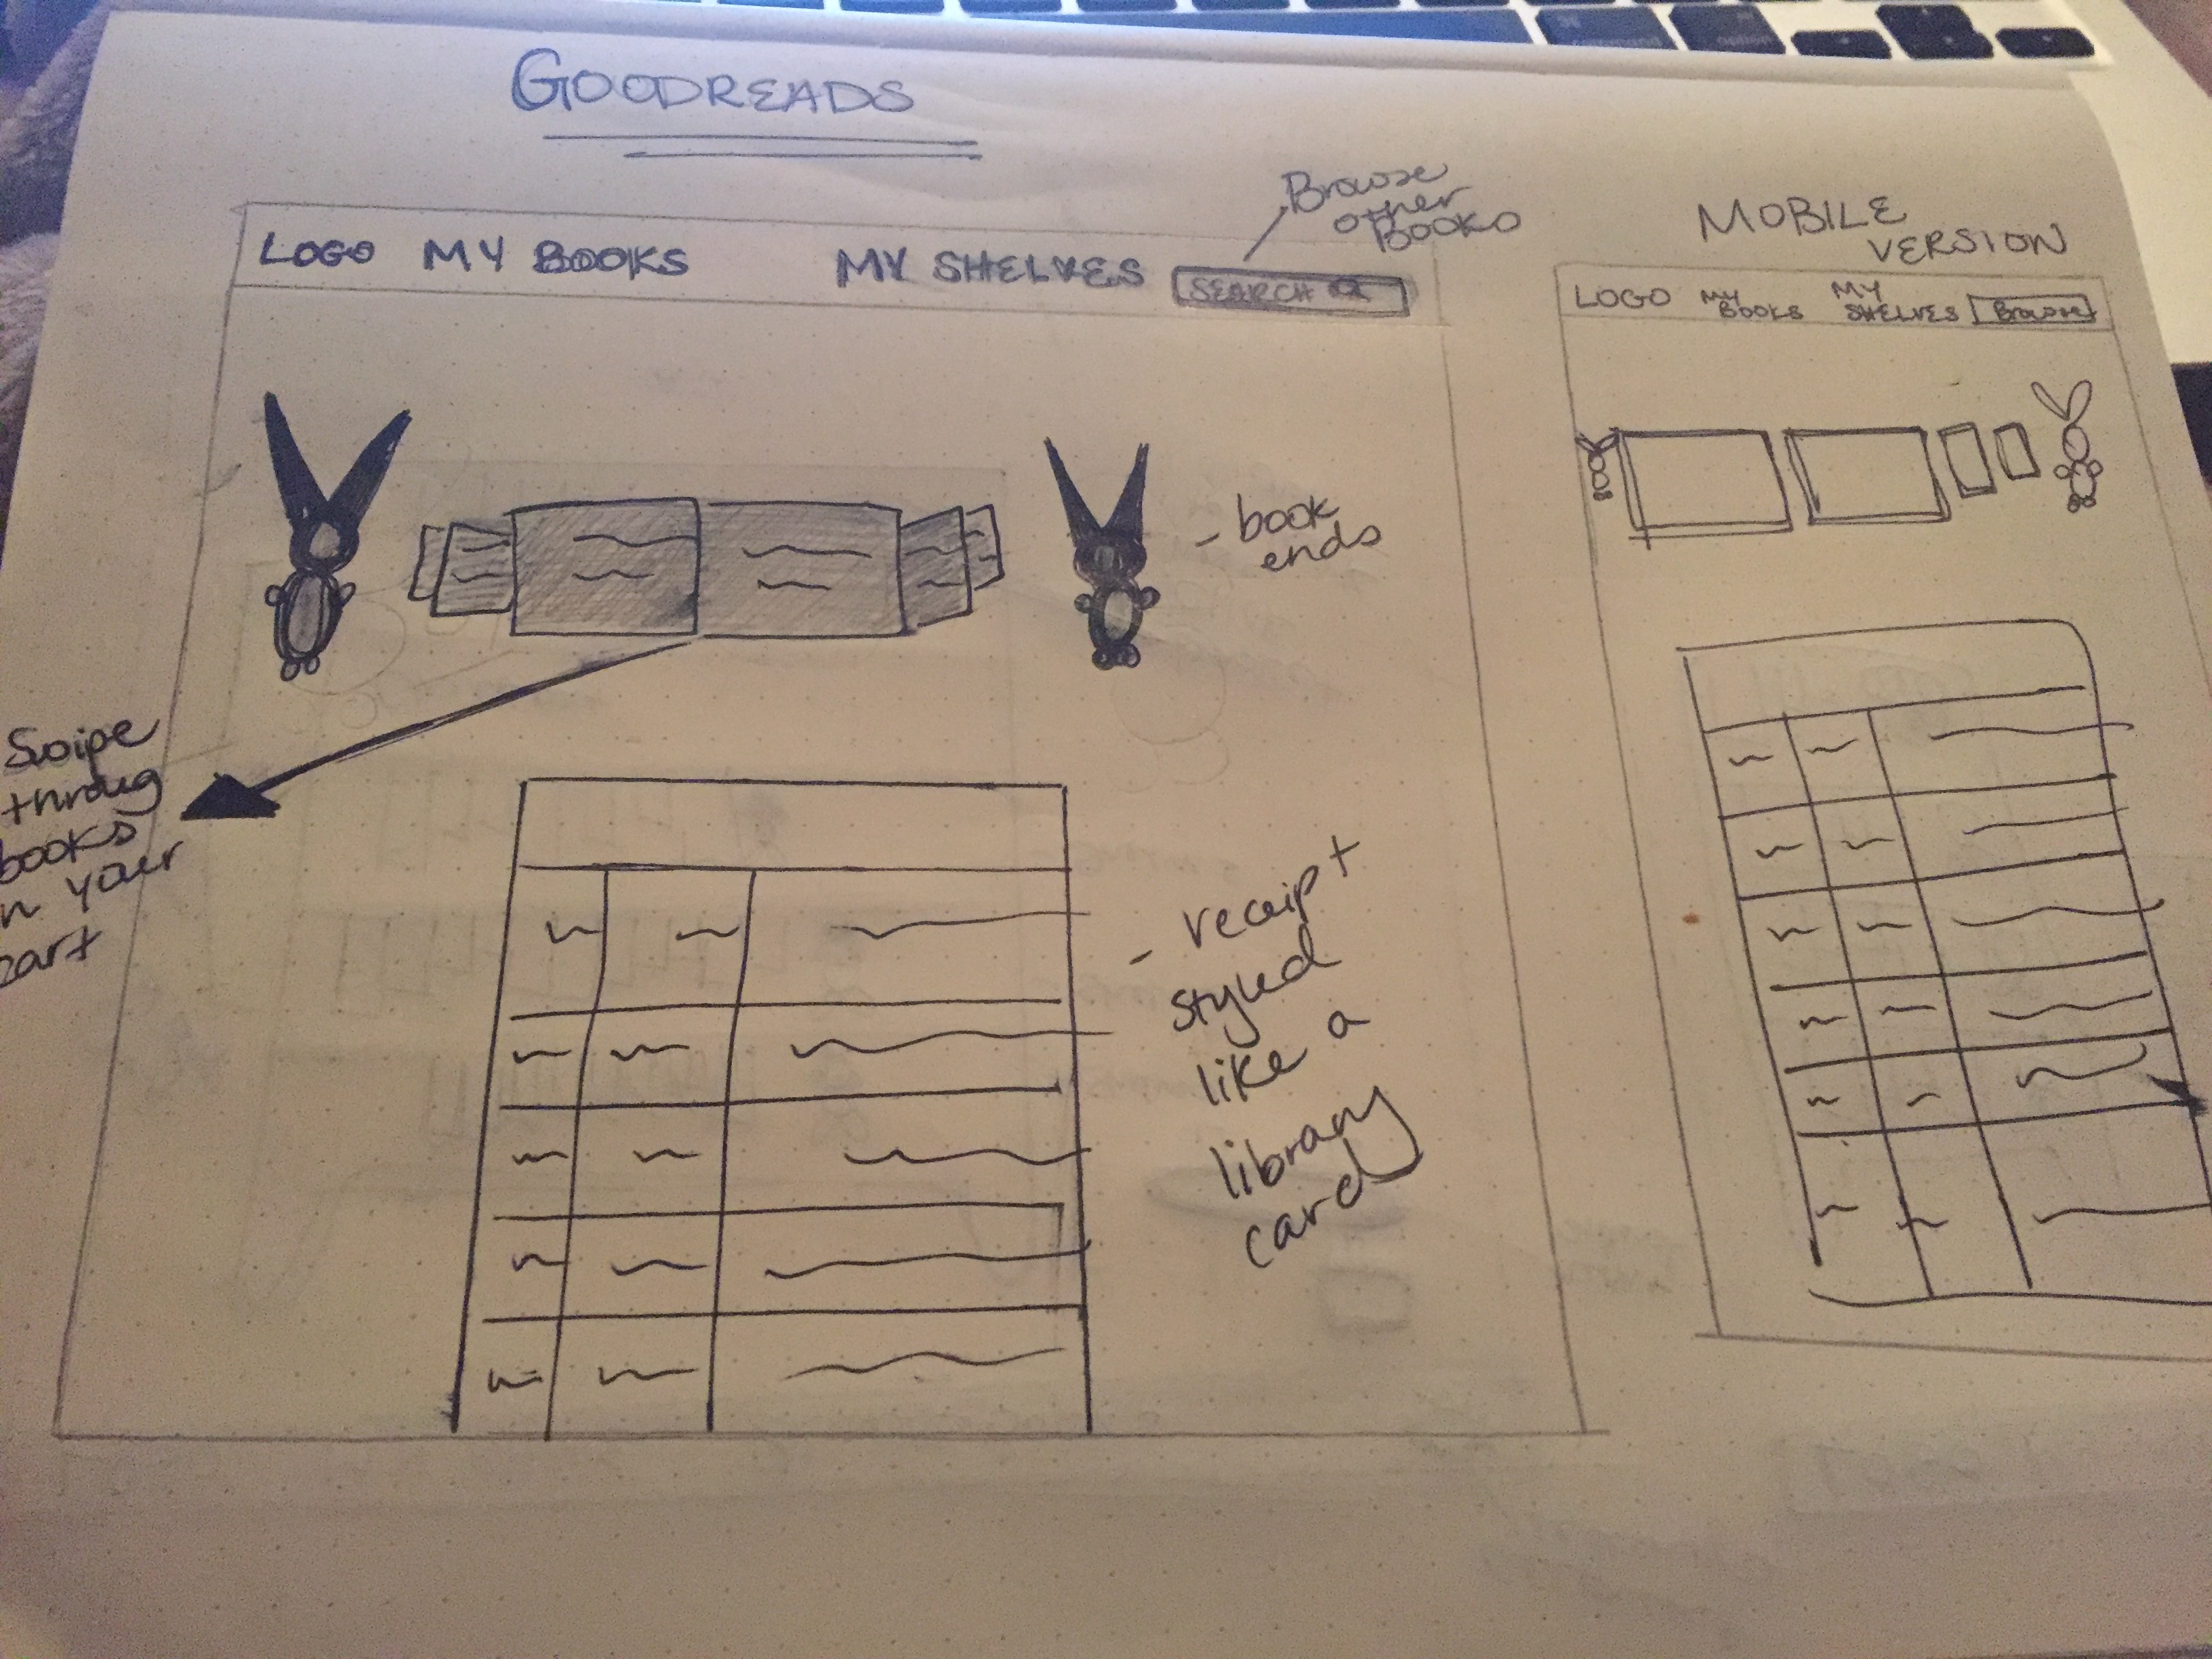 GOODREADS
Browse
other
Books
LOGO MY BOOKS MY SHELVES SEARCH
- book
ends
Swipe
throug
books
n your
cart
- receipt
styled
like a
library
card
MOBILE
VERSION
LOGO MY
BOOKS MY
SHELVES Browse